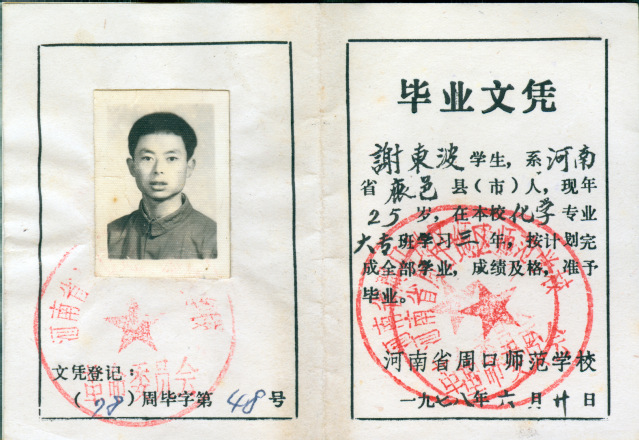 文凭登记：
（78）周毕字第 48 号
毕业文凭
謝東波学生，系河南
省鹿邑县（市）人，现年
25岁，在本校化学专业
大专班学习三年，按计划完
成全部学业，成绩及格，准予
毕业。
河南省周口师范学校
一九七八年六月廿日